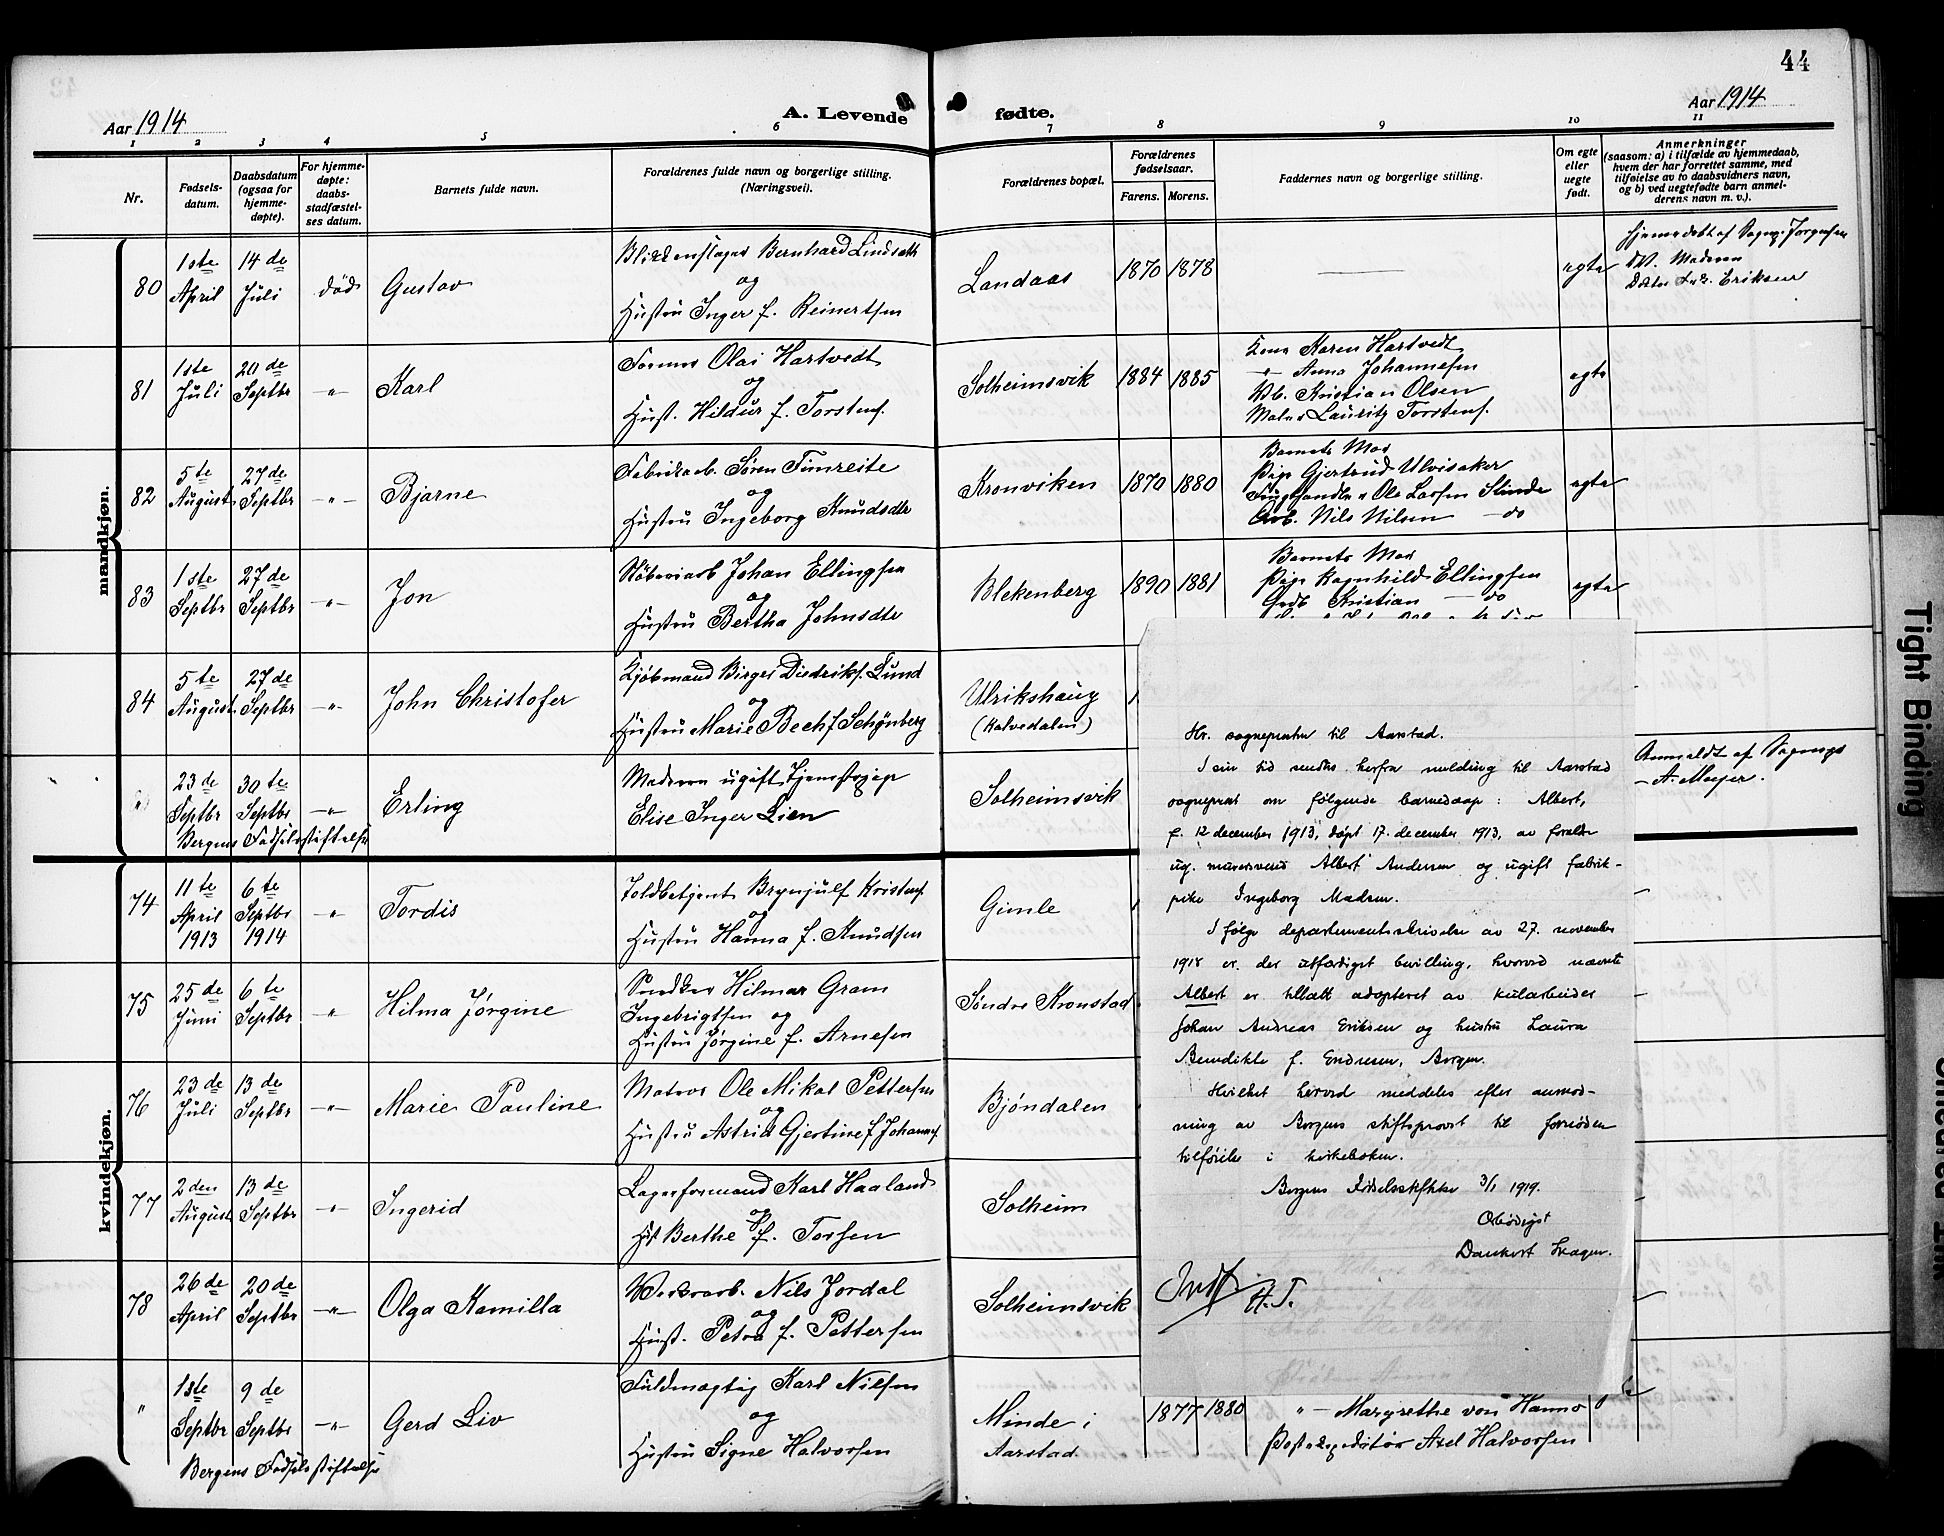 44
Aar 1914
A. Levende fødte.
Aar 1914
1 2 3 4 5 6 7 8 9 10 11
Nr.
Fødsels-
datum.
Daabsdatum
(ogsaa for
hjemme-
døpte).
For hjemme-
døpte:
daabs-
stadfæstel-
ses datum.
Barnets fulde navn.
Forældrenes fulde navn og borgerlige stilling.
(Næringsvei).
Forældrenes bopæl.
Forældrenes
fødselsaar.
Farens. Morens.
Faddernes navn og borgerlige stilling.
Om egte
eller
uegte
født.
Anmerkninger
(saasom: a) i tilfælde av hjemmedaab,
hvem der har forrettet samme, med
tilføielse av to daabsvidners navn,
og b) ved uegtefødte barn anmel-
derens navn m. v.).
mandkjøn.
80
1ste
April
14de
Juli
død
Gustav
Blikkenslager Bernhard Lindseth
og
Hustru Inger f. Reinertsen
Landaas
1870 1878
egte
Hjemmedøbt af Sogn.pr. Jørgensen
DV. Moderen
Doktor Eriksen
81
1ste
Juli
20de
Septbr
-"-
Karl
Former Olai Hartvedt
og
Hust. Hildur f. Torstens.
Solheimsvik
1884 1885
Kone Karen Hartvedt
-"- Anna Johannesen
Kristian Olsen
Maler Lauritz Torstens.
egte
82
5te
August
27de
Septbr
-"-
Bjarne
Fabrikarb. Søren Timreite
og
Hustru Ingeborg Knudsdtr
Kronviken
1870 1880
Barnets Mor
Pige Gjertrud Ulvisaker
Ole Larsen Slinde
Arb. Nils Nilsen - do
egte
83
1ste
Septbr
27de
Septbr
-"-
Jon
Støberiarb Johan Ellingsen
og
Hustru Bertha Johnsdtr
Blekenberg
1890 1881
Barnets Mor
Pige Ragnhild Ellingsen
Gdb. Kristian - do
egte
84
5te
August
27de
Septbr
-"-
John Christofer
Kjøbmand Birger Diedriks. Lund
og
Hustru Marie Bech f. Schønberg
Ulrikshaug
(Kalvedalen)
"
23de
Septbr
30te
Septbr
-"-
Erling
Moderen ugift Tjenestepige
Elise Inger Lien
Solheimsvik
Anmeldt af Sognepr
- A. Meyer.
Bergens Fødselsstiftelse
kvindekjøn.
74
11te
April
1913
6te
Septbr
1914
"
Tordis
Toldbetjent Brynjulf Kristens.
og
Hustru Hanna f. Knudsen
Gimle
75
25de
Juni
6te
Septbr
"
Hilma Jørgine
Snedker Hilmar Gram
Ingebrigtsen og
Hustru Jørgine f. Arnesen
Søndre Kronstad
76
23de
Juli
13de
Septbr
-"-
Marie Pauline
Matros Ole Mikal Pettersen
og
Hustru Astrid Gjertine f. Johannes.
Bjøndalen
77
2den
August
13de
Septbr
"
Ingerid
Lagerformand Karl Haaland
og
Hst Berthe f. Torsen
Solheim
78
26de
April
20de
Septbr
-"-
Olga Kamilla
Verksarb. Nils Jordal
og
Hust. Petra f. Pettersen
Solheimsvik
"
1ste
Septbr
9de
Septbr
-"-
Gerd Liv
Fuldmægtig Karl Nilsen
og
Hustru Signe Halvorsen
Minde i
Aarstad
1877 1880
" - Margrethe von Hanno
Postexpeditør Axel Halvorsen
Bergens Fødselsstiftelse
Hr. sogneprestn til Aarstad.
I sin tid sendtes herfra melding til Aarstad
sogneprest om følgende barnedaap: Albert,
f. 12 december 1913, døpt 17. december 1913, av foreldre
ug. murersvend Albert Andersen og ugift fabrik-
pike Ingeborg Madsen.
I følge departementsskrivelse av 27. november
1918 er der utfærdiget bevilling, hvorved nævnte
Albert er tillatt adopteret av kularbeider
Johan Andreas Eriksen og hustru Laura
Benedikte f. Endresen, Bergen.
Hvilket herved meddeles efter anmod-
ning av Bergens stiftsprovst til fornøden
tilføielse i kirkeboken.
Bergens Fødselsstiftelse 3/1 1919.
Ærbødigst
Dankert Skagen.
Indf.
H.T.
Tight Binding